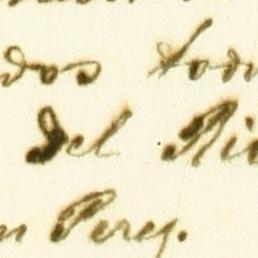 dos tod
del Rio
n Perez.